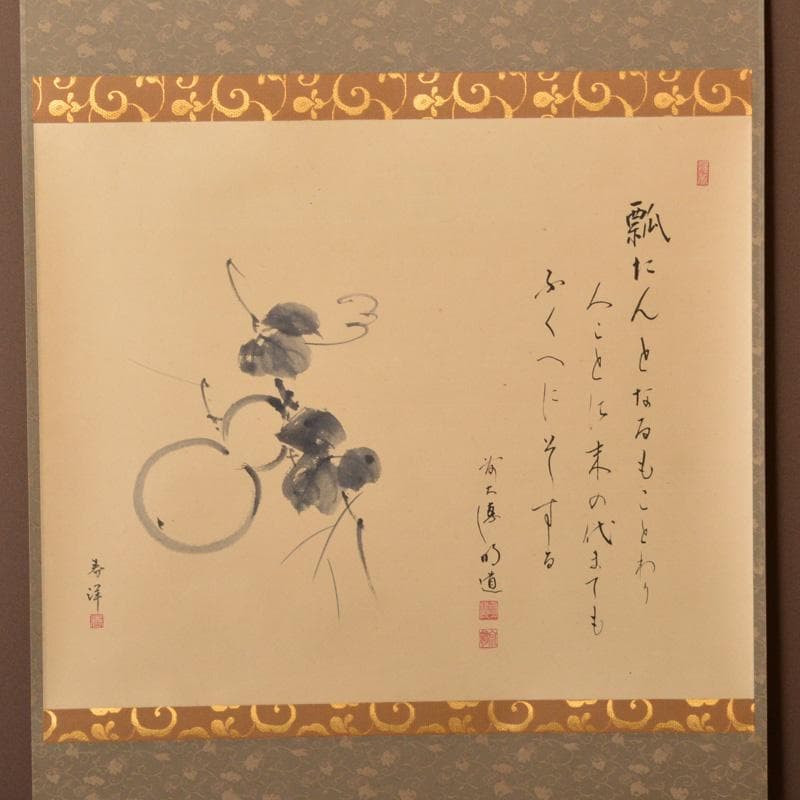 瓢たんとなるもことわり
人ことに末の代まても
ふくへにそする
大傳明道
寿洋